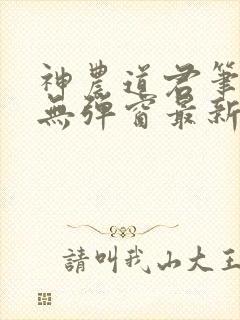 神農道君筆
無彈窗最新
請叫我山大王